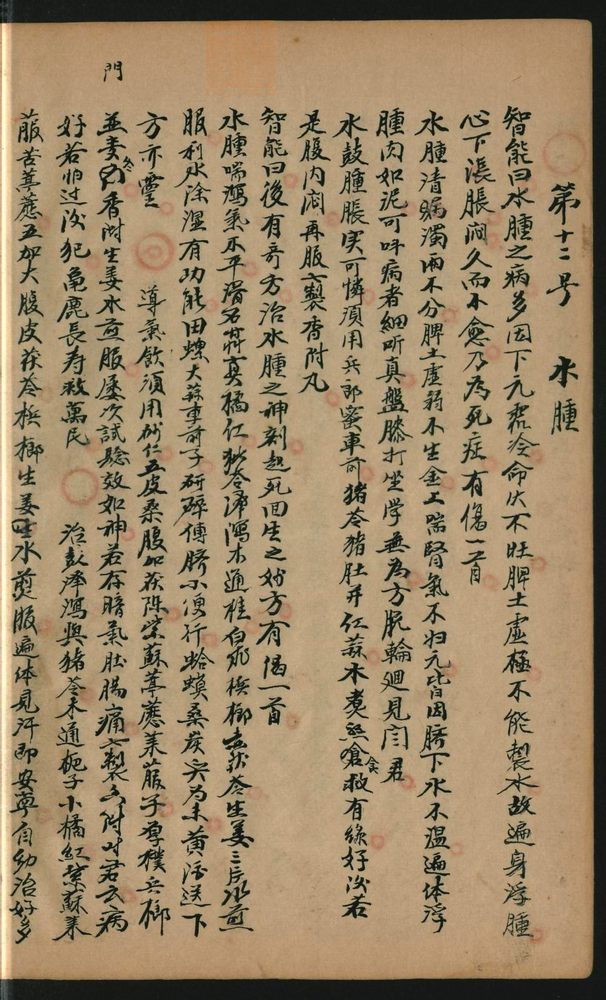 第十二号　水腫
智能曰水腫之病多因下元虛冷命火不旺脾土虛極不能製水故遍身浮腫
心下漲脹悶久而不愈乃為死症有偈一首
水腫清瞩濁兩不分脾土虛弱不生金上喘腎氣不归元皆因臍下水不溫遍体浮
腫肉如泥可呼病者細听真盤膝打坐学無為方脱輪廻見閻君
水鼓腫脹实可憐須用兵郎蜜車前猪苓猪肚幷仁蒜木煮熟嗆食救有緣好後若
是腹内悶再服六製香附丸
智能曰後有奇方治水腫之神剂起死回生之妙方有偈一首
水腫喘瀉氣不平滑石荊真橘仁猪苓澤瀉木通桂白朮檳榔去茯苓生姜三片水煎
服利水除湿有功能田螺大蒜車前子研碎傅臍小便行蛤蟆桑炭共为末黄酒送下
方亦靈　導氣飲須用砂仁五皮桑腹加茯陳紫蘇葶藶萊菔子厚樸兵榔
並麦冬香附生姜水煎服屡次試驗效如神若存暗氣肚腸痛六製香附叫君云病
好若怕过後犯龜鹿長寿救萬民　治彭澤瀉與猪苓木通梔子小橘紅紫蘇萊
菔苦葶藶五加大腹皮茯苓檳榔生姜水煎服遍体見汗即安寧自幼治好多
門